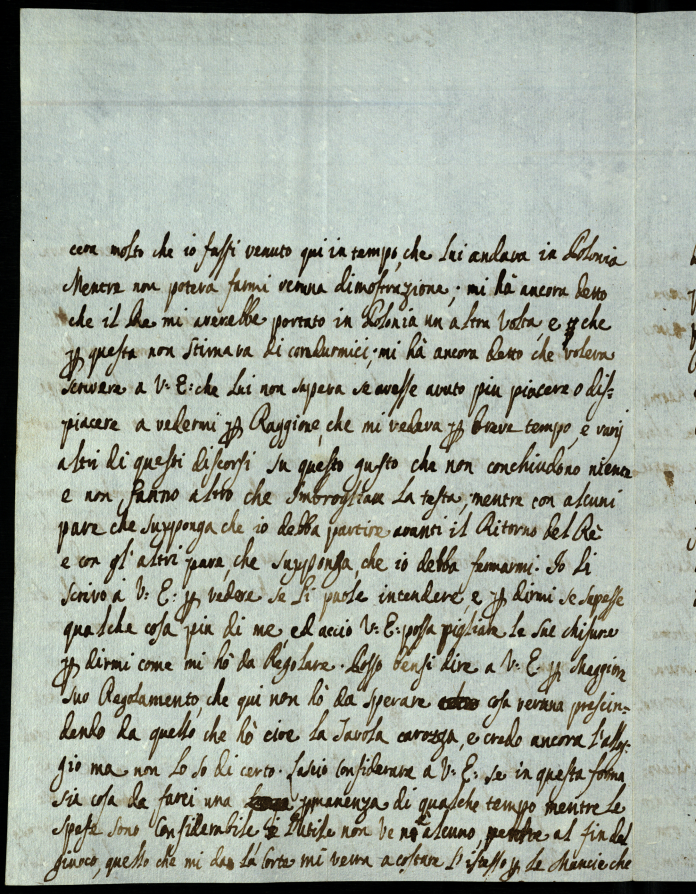 cera molto che io fussi venuto qui in tempo, che lui andava in Polonia
Mentre non poteva farmi veruna dimostrazione; mi hà ancora detto
che il Re mi averebbe portato in Polonia un altra volta, e che
ꝑ questa non stimava di condurmici; mi hà ancora detto che voleva
scrivere a V: E: che lui non sapeva se avesse avuto piu piacere o dis=
piacere a vedermi ꝑ Raggione, che mi vedeva ꝑ breve tempo, e varij
altri di questi discorsi su questo gusto che non conchiudono niente
e non fanno altro che imbrogliare la testa, mentre con alcuni
pare che supponga che io debba partire avanti il Ritorno del Rè
e con gl'altri pare, che supponga, che io debba fermarmi. Io Li
scrivo à V: E: ꝑ vedere se Li puole intendere, e ꝑ dirmi se sapesse
qualche cosa piu di me, ed acciò V: E: possa pigliare le sue misure
ꝑ dirmi come mi hò da Regolare. Posso bensi dire a V: E: ꝑ maggior
suo Regolamento, che qui non hò da sperare cosa veruna prescin=
dendo da quello che hò cioe la Tavola carozza, e credo ancora l'allog=
gio ma non lo so di certo. Lascio considerare a V: E: se in questa forma
sia cosa da farci una ꝑmanenza di qualche tempo mentre le
spese sono considerabile e l'utile non ve n'è alcuno mentre al fin del
giuoco, quello che mi da la Corte mi verra a costare l'istesso ꝑ le mancie che